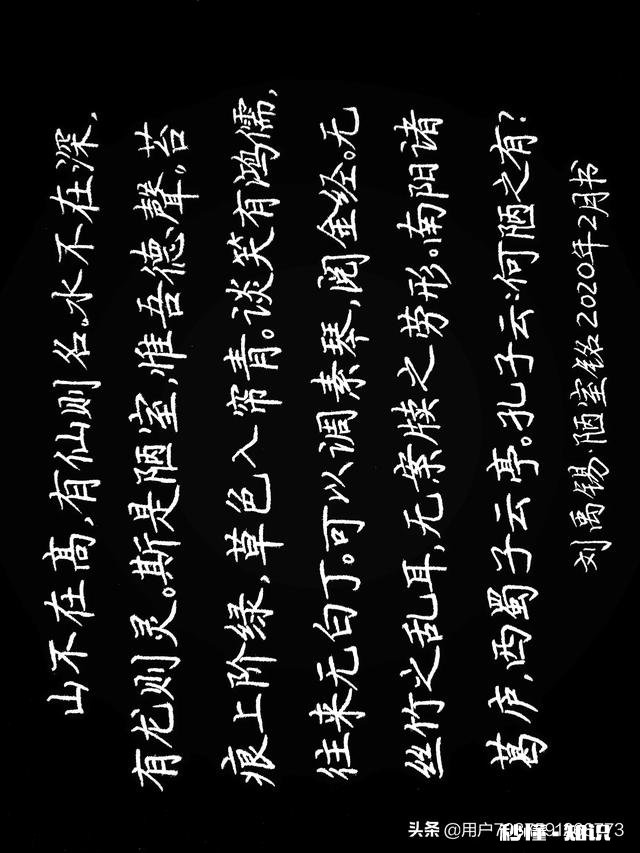 山不在高,有仙则名。水不在深,
有龙则灵。斯是陋室,惟吾德馨。苔
痕上阶绿,草色入帘青。谈笑有鸿儒,
往来无白丁。可以调素琴,阅金经。无
丝竹之乱耳,无案牍之劳形。南阳诸
葛庐,西蜀子云亭。孔子云:何陋之有?
刘禹锡·陋室铭 2020年2月书
头条 @用户
秒懂·知识